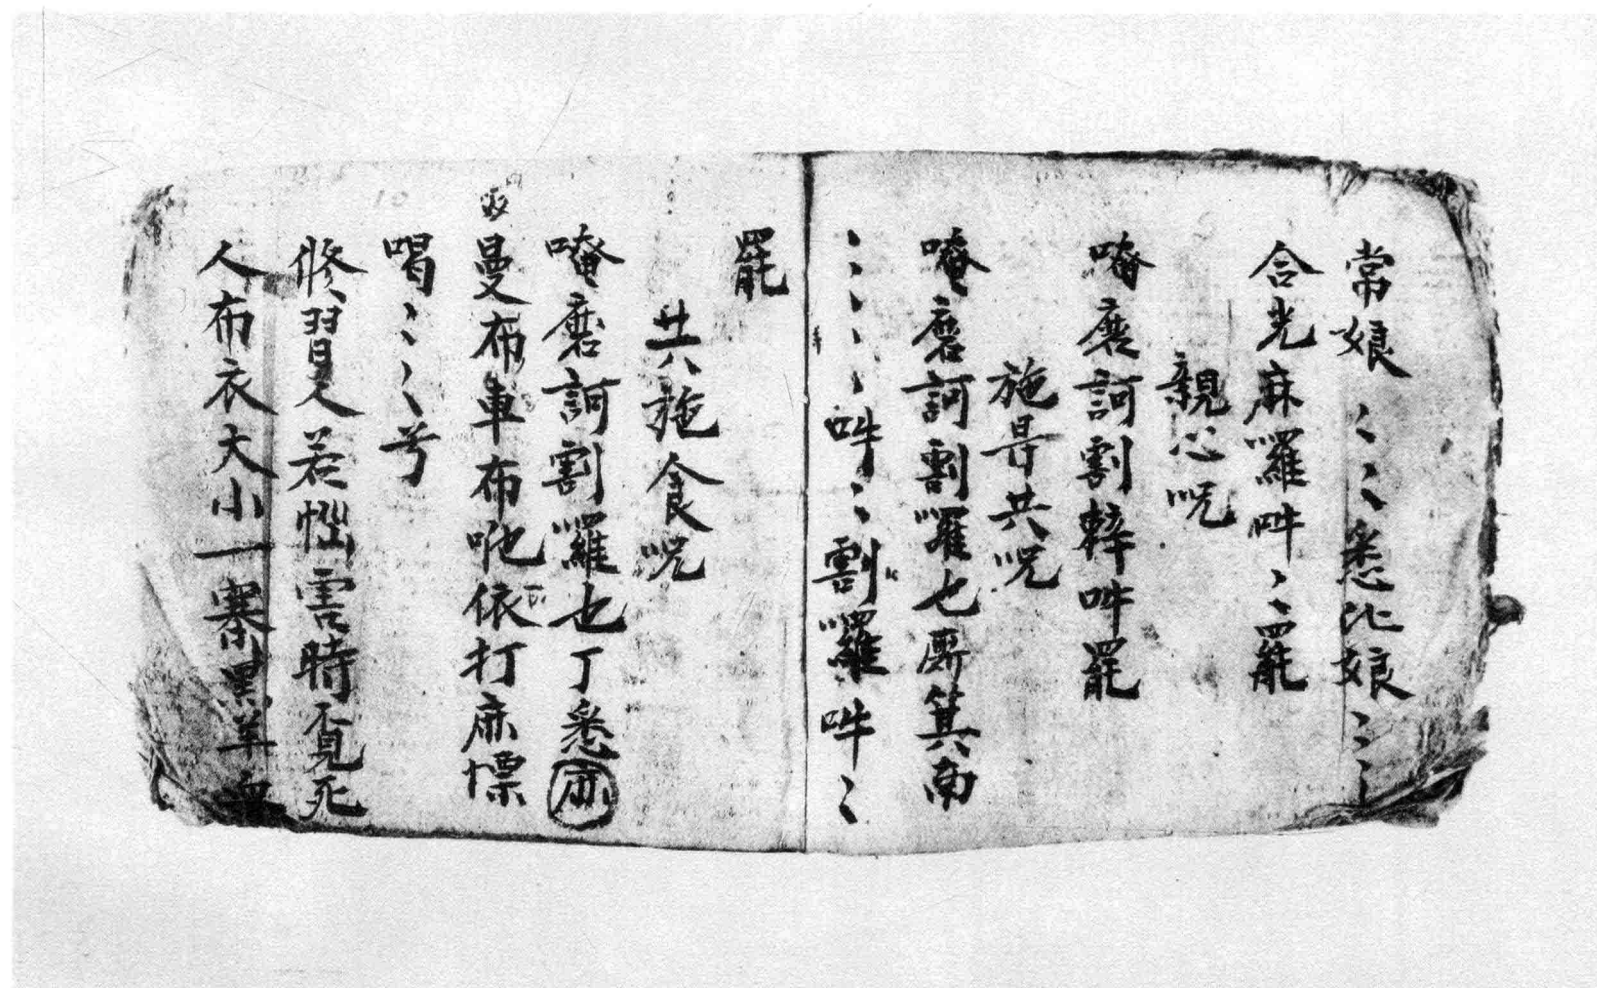 常娘〻〻〻悉比娘〻〻〻
合光麻囉吽〻〻罷
親心呪
唵磨訶割辢吽罷
施㝵共呪
唵磨訶割囉七廝箕南
〻〻〻〻吽〻〻割囉吽〻〻
罷
共施食呪
唵磨訶割囉也丁悉麻
曼布車布吔依打麻慓
喝〻〻〻〻兮
修習人若惱害時覓死
人布衣大小一寨黑羊血